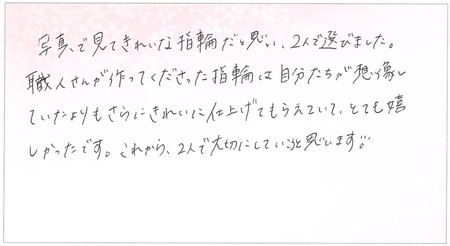 写真で見てきれいな指輪だと思い、2人で選びました。
職人さんが作ってくださった指輪は自分たちが想像し
ていたよりもさらにきれいに仕上げてもらえていて、とても嬉
しかったです。これから、2人で大切にしていこうと思います!!